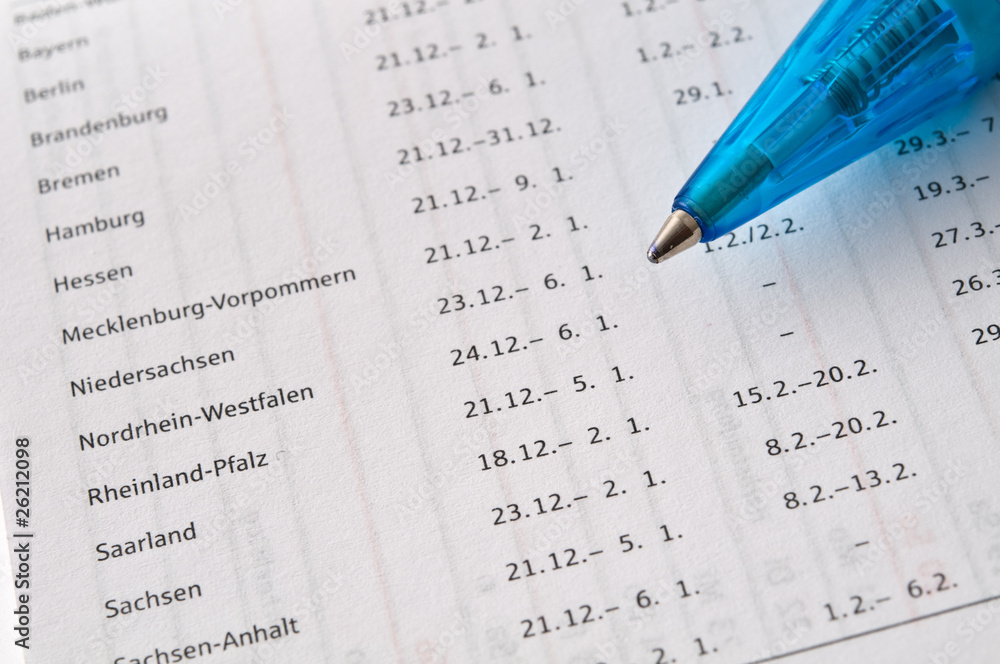 Bayern
Berlin 21.12.–
Brandenburg 21.12.– 2. 1. 1.2.–
Bremen 23.12.– 6. 1. 1.2.– 2.2.
Hamburg 21.12.–31.12. 29.1.
Hessen 21.12.– 9. 1.
Mecklenburg-Vorpommern 21.12.– 2. 1. 29.3.– 7
Niedersachsen 23.12.– 6. 1. 1.2./2.2. 19.3.–
Nordrhein-Westfalen 24.12.– 6. 1. – 27.3.–
Rheinland-Pfalz 21.12.– 5. 1. – 26.3
Saarland 18.12.– 2. 1. 15.2.–20.2. 29
Sachsen 23.12.– 2. 1. 8.2.–20.2.
Sachsen-Anhalt 21.12.– 5. 1. 8.2.–13.2.
21.12.– 6. 1. –
2. 1. 1.2.– 6.2.
Adobe Stock | #26212098